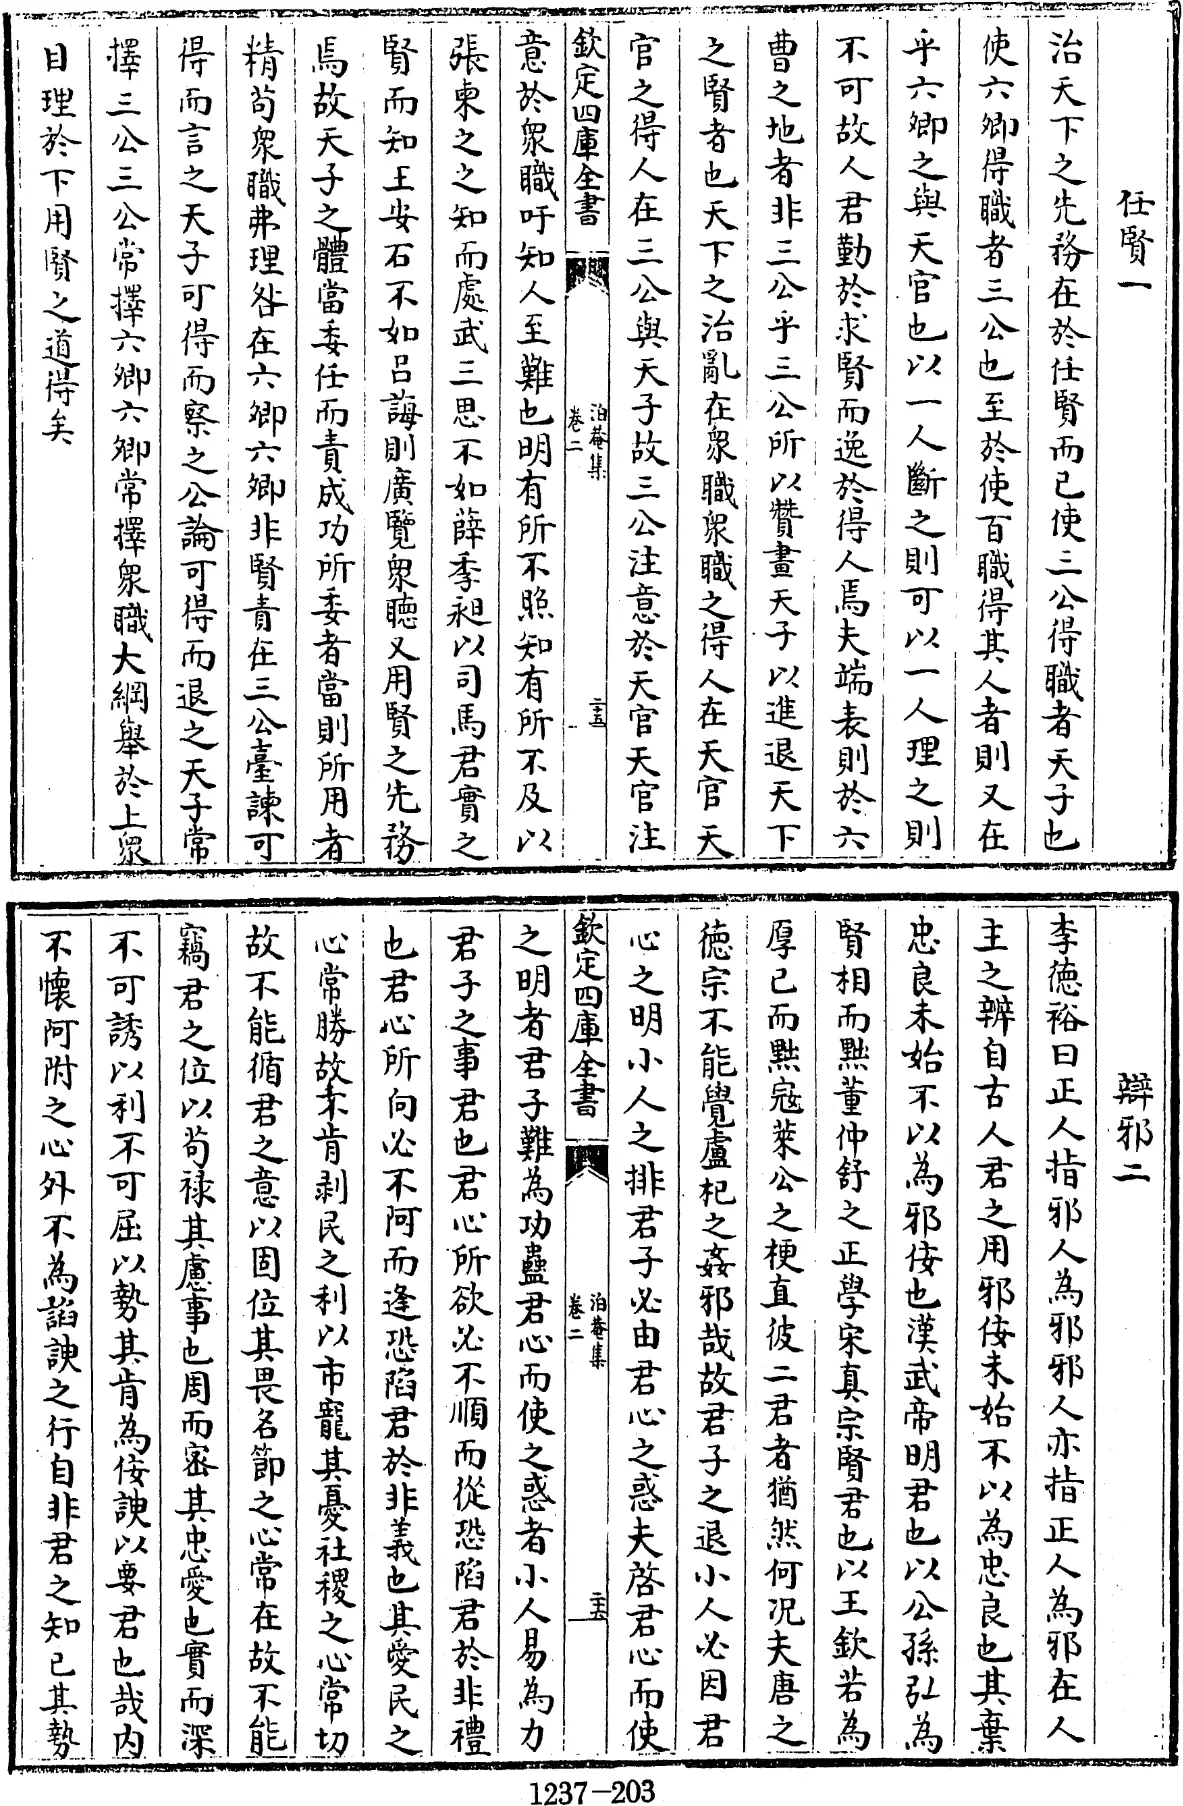 任賢一
治天下之先務在於任賢而已使三公得職者天子也
使六卿得職者三公也至於使百職得其人者則又在
乎六卿之與天官也以一人斷之則可以一人理之則
不可故人君勤於求賢而逸於得人焉夫端表則於六
曹之地者非三公乎三公所以贊畫天子以進退天下
之賢者也天下之治亂在衆職衆職之得人在天官天
官之得人在三公與天子故三公注意於天官天官注
欽定四庫全書
泊菴集
卷二
二十五
意於衆職吁知人至難也明有所不照知有所不及以
張柬之之知而處武三思不如薛季昶以司馬君實之
賢而知王安石不如呂誨則廣覽衆聽又用賢之先務
焉故天子之體當委任而責成功所委者當則所用者
精茍衆職弗理咎在六卿六卿非賢責在三公臺諫可
得而言之天子可得而察之公論可得而退之天子常
擇三公三公常擇六卿六卿常擇衆職大綱舉於上衆
目理於下用賢之道得矣
辯邪二
李德裕曰正人指邪人為邪邪人亦指正人為邪在人
主之辨自古人君之用邪佞未始不以為忠良也其棄
忠良未始不以為邪佞也漢武帝明君也以公孫弘為
賢相而黜董仲舒之正學宋真宗賢君也以王欽若為
厚己而黜寇萊公之梗直彼二君者猶然何况夫唐之
德宗不能覺盧杞之姦邪哉故君子之退小人必因君
心之明小人之排君子必由君心之惑夫啓君心而使
欽定四庫全書
泊菴集
卷二
二十六
之明者君子難為功蠱君心而使之惑者小人易為力
君子之事君也君心所欲必不順而從恐陷君於非禮
也君心所向必不阿而逢恐陷君於非義也其愛民之
心常勝故未肯剥民之利以市寵其憂社稷之心常切
故不能循君之意以固位其畏名節之心常在故不能
竊君之位以茍祿其慮事也周而密其忠愛也實而深
不可誘以利不可屈以勢其肯為佞諛以要君也哉内
不懷阿附之心外不為諂諛之行自非君之知已其勢
1237-203